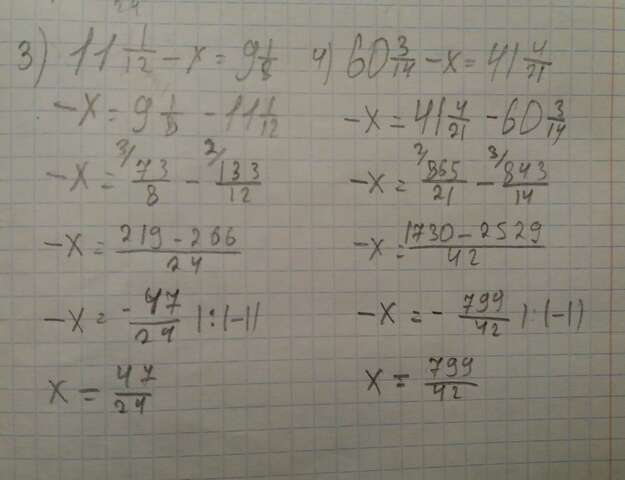 3) 11 1/12 - x = 9 1/8
-x = 9 1/8 - 11 1/12
-x = 3/ 73/8 - 2/ 133/12
-x = 219-266/24
-x = -47/24 |:(-1)
x = 47/24
4) 60 3/14 - x = 41 4/21
-x = 41 4/21 - 60 3/14
-x = 2/ 865/21 - 3/ 843/14
-x = 1730-2529/42
-x = - 799/42 |:(-1)
x = 799/42